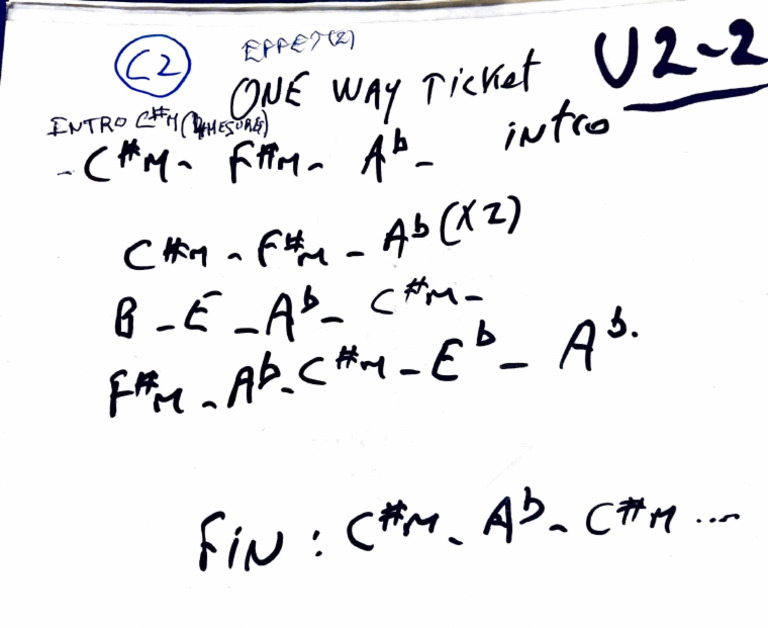 C2 EFFET(2) U2-2
ONE WAY TICKET
INTRO C#M (MESURES)
- C#M - F#M - Ab - intro
C#M - F#M - Ab (X2)
B - E - Ab - C#M -
F#M - Ab - C#M - Eb - Ab.
FIN : C#M - Ab - C#M ...